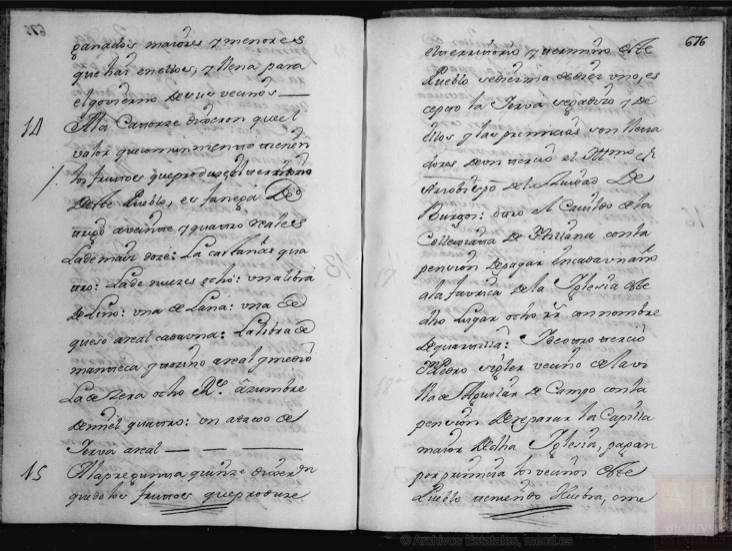 ganados maiores y menores
que hai en ellos, y llena para
el govierno de sus vecinos
14
A la Catorze dixeron que el
valor que comunmente tienen
los frutos que produze el territorio
de este Pueblo, es fanega de
trigo a veinte y quatro reales
la de maiz doze: la castañas qua
tro: la de nuezes ocho: una libra
de Lino: una de Lana: una de
queso a real cada una: la libra de
manteca y tozino a real y medio
La de Zera ocho Rs. Azumbre
de miel quatro: un
Yerva a real
15
A la pregunta quinze dixeron
que de los frutos que produze
676
el territorio y termino de este
Pueblo se diezma de diez uno, es
cepto la Yerva segadero y de
ellos y las primicias son lleva
dores de un tercio el Ittmo. Sr.
Arzobispo de la Ciudad de
Burgos: otro el Cavildo de la
Collegiata de Santillana con la
pension de pagar en cada un año
a la favrica de la Iglesia de este
dho Lugar ocho rs. en nombre
de quartilla: Y el otro tercio
Dn. Pedro vecino de la vi
lla de Aguilar de Campo con la
pension de reparar la Capilla
maior de dha Iglesia, pagan
por primicia los vecinos de este
Pueblo teniendo Huebra, eme
© Archivos Estatales, mecd.es